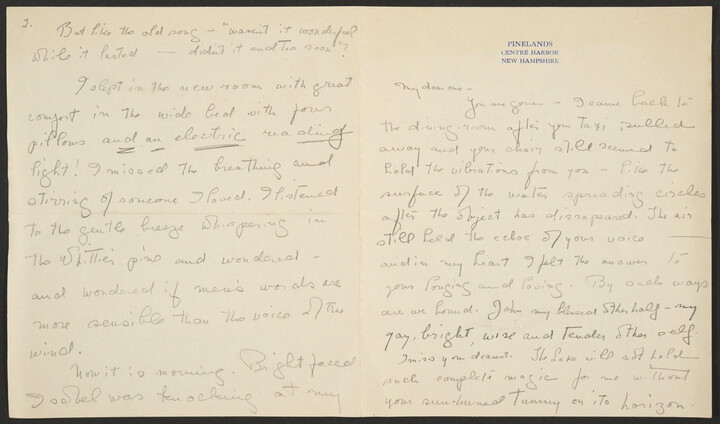 PINELANDS
CENTRE HARBOR
NEW HAMPSHIRE
My dear one -
You are gone - I came back to
the dining-room after you taxi pulled
away and your chair still seemed to
hold the vibrations from you - like the
surface of the water spreading circles
after the object has dissapeared. The air
still held the echoe of your voice —
and in my heart I felt the answer to
your longing and loving. By such ways
are we bound. John my blessed other half - my
gay, bright, wise and tender other self.
I miss you dearest. The Lake will not hold
such complete magic for me without
your sun-burned tummy on its horizon.
2.
But like the old song - "wasn't it wonderful
while it lasted — didn't it end too soon"?
I slept in the new room with great
comfort in the wide bed with four
pillows and an electric reading
light! I missed the breathing and
stirring of someone I loved. I listened
to the gentle breeze whispering in
the Whittier pine and wondered -
and wondered if men's words are
more sensible than the voice of the
wind.
Now it is morning. Bright faced
Isobel was knocking at my